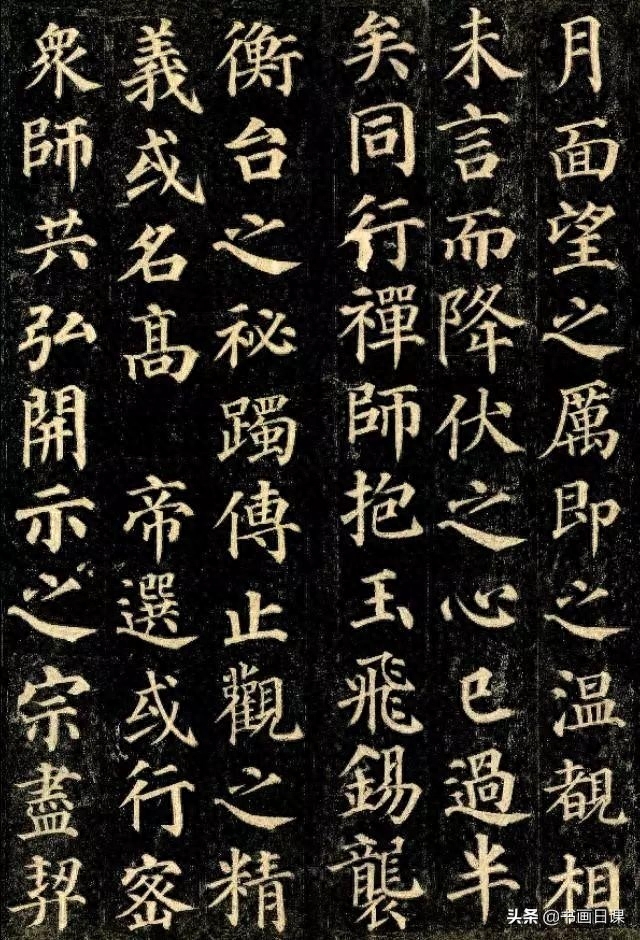 月面望之厲即之温覩相
未言而降伏之心已過半
矣同行禪師抱玉飛錫襲
衡台之祕躅傳止觀之精
義或名高 帝選或行密
衆師共弘開示之宗盡契
头条 @书画日课